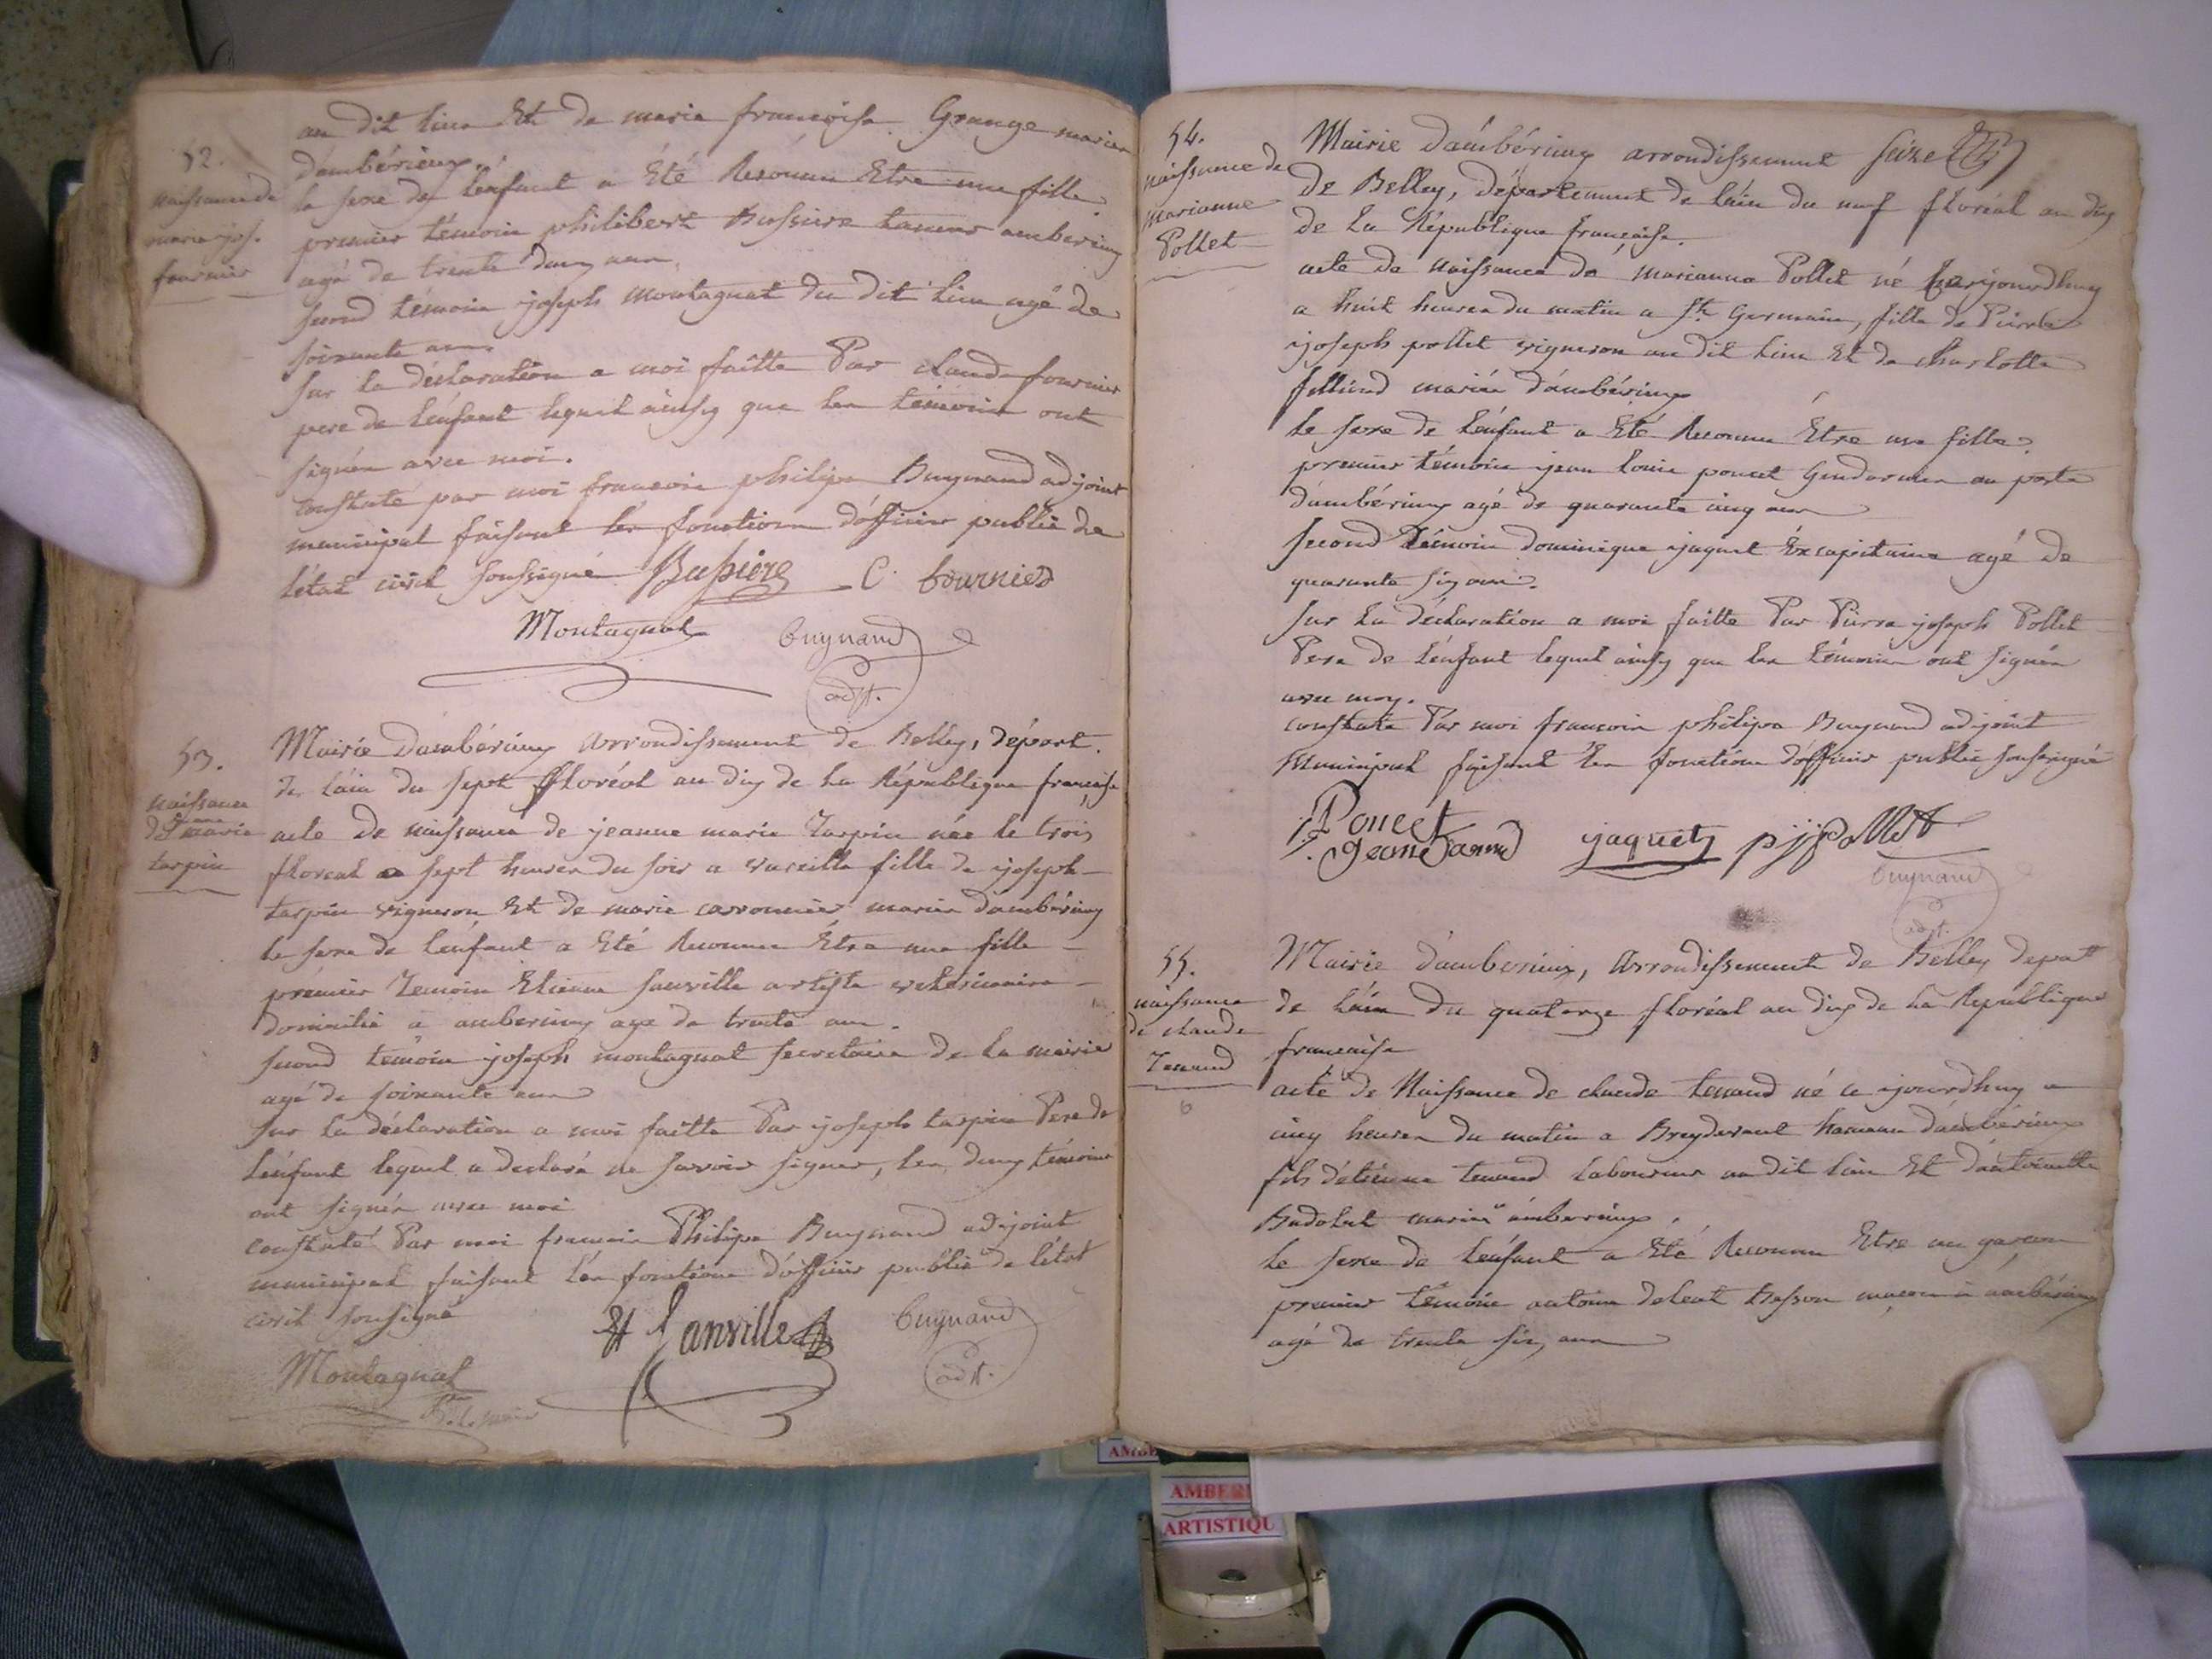 52.
naissance de
marie jos.
fournier
au dit lieu Et de marie françoise Grange mariés
d'ambérieux.
le sexe de l'enfant a Eté Reconnu Etre une fille.
premier témoin philibert Bussiere tanneur amberieux
agé de trente deux ans.
second témoin joseph montagnat du dit lieu agé de
soixante ans.
sur la déclaration a moi faitte Par claude fournier
pere de l'enfant lequel ainsy que les témoins ont
signés avec moi.
constaté par moi francois philipe Buynand adjoint
municipal faisant les fonctions d'officier public de
l'état civil soussigné Bussiere C. fournier
Montagnat Buynand
adjt.
53.
naissance
de jnne marie
tarpin
Mairie d'ambérieux arrondissement de Belley, départ.
de l'ain du sept floréal an dix de la République française
acte de naissance de jeanne marie Tarpin née le trois
floreal a sept heures du soir a vareille fille de joseph
tarpin vigneron Et de marie carronnier mariés d'ambérieux
le sexe de l'enfant a Eté Reconnu Etre une fille
prémier Temoin Etienne Sanville artiste vetérinaire
domicilié a amberieux agé de trente ans.
second temoin joseph montagnat secretaire de la mairie
agé de soixante ans
sur la déclaration a moi faitte Par joseph tarpin Pere de
l'enfant lequel a declaré ne savoir signer, les deux témoins
ont signés avec moi
constaté Par moi francois Philipe Buynand adjoint
municipal faisant les fonctions d'officier public de l'état
civil sousigné
Et Sanville Buynand
adjt.
Montagnat
54.
naissance de
marianne
Pollet
Mairie d'ambérieux arrondissement seize
de Belley, département de l'ain du neuf floréal an dix
de la République française.
acte de naissance de marianne Pollet né cejourdhuy
a huit heures du matin a St Germain, fille de Pierre
joseph pollet vigneron au dit lieu Et de charlotte
mariés d'ambérieux
le sexe de l'enfant a Eté Reconnu Etre une fille.
premier témoin jean louis poncet Gendarmes au poste
d'ambérieux agé de quarante cinq ans
second Témoin dominique jaquet Excapitaine agé de
quarante six ans.
sur la déclaration a moi faitte Par Pierre joseph Pollet
Pere de l'enfant lequel ainsy que les témoins ont signés
avec moy.
constaté Par moi francois philipe Buynand adjoint
Municipal faisant les fonctions d'officier public soussigné
Poncet
jaquet pjpollet
Buynand
adjt.
55.
naissance
de claude
Tenand
Mairie d'amberieux, arrondissement de Belley depat
de l'ain du quatorze floréal an dix de la Republique
française
acte de Naissance de claude tenand né ce jourdhuy a
cinq heures du matin a Breydevent hameau d'ambérieux
fils d'étienne tenand laboureur au dit lieu Et d'antoinette
Badolat mariés amberieux.
le sexe de l'enfant a Eté Reconnu Etre un garcon
premier témoin antoine deleat besson macon a ambérieux
agé de trente six ans
AMBE
AMBERI
ARTISTIQU